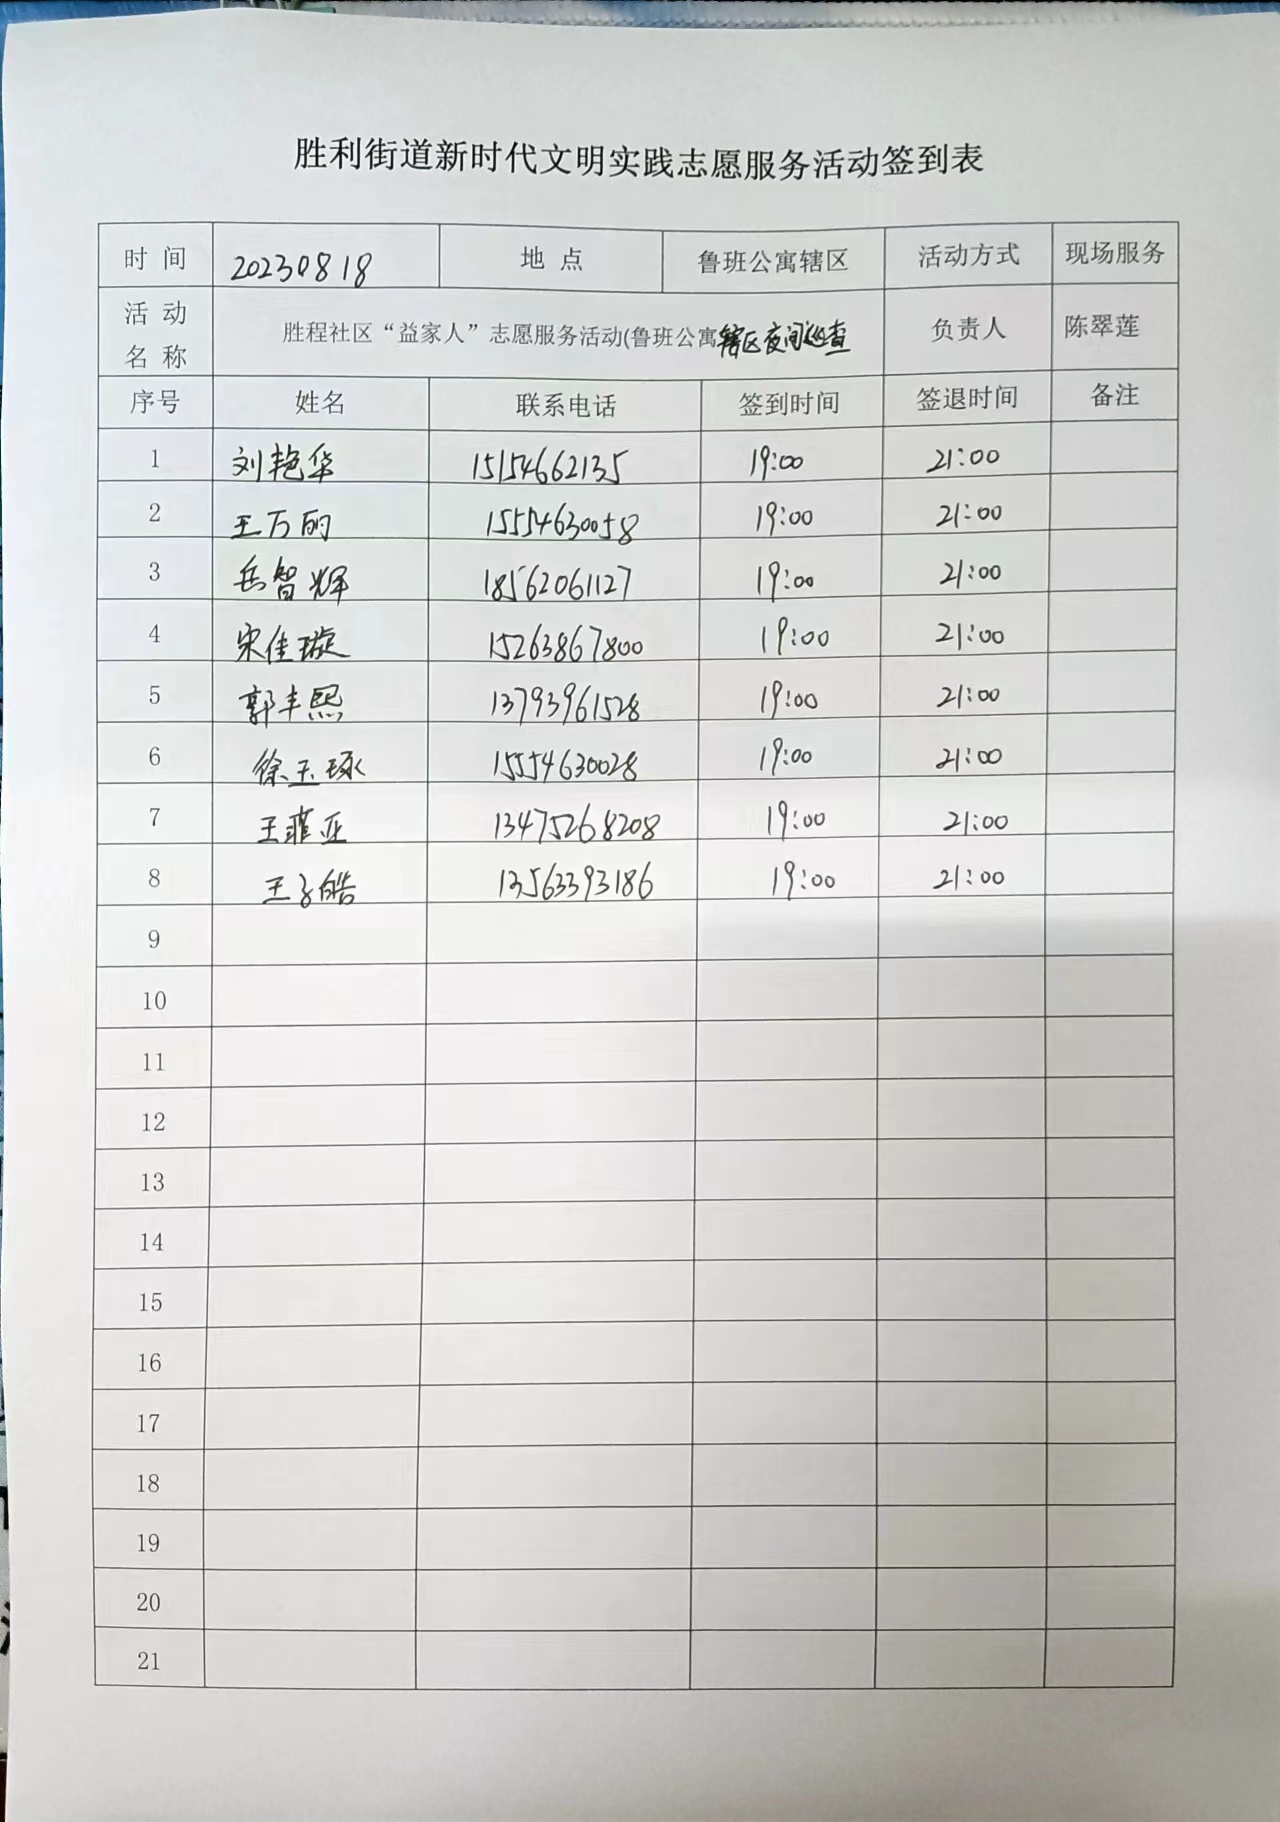 胜利街道新时代文明实践志愿服务活动签到表
时 间 20230818 地 点 鲁班公寓辖区 活动方式 现场服务
活 动 名 称 胜程社区“益家人”志愿服务活动(鲁班公寓辖区夜间巡查 负责人 陈翠莲
序号 姓名 联系电话 签到时间 签退时间 备注
1 刘艳华 15154662135 19:00 21:00
2 王万的 15554630058 19:00 21:00
3 岳智辉 18562061127 19:00 21:00
4 宋佳璇 15263867800 19:00 21:00
5 郭丰熙 13793961528 19:00 21:00
6 徐玉琢 15554630028 19:00 21:00
7 王菲亚 13475268208 19:00 21:00
8 王子皓 13563393186 19:00 21:00
9
10
11
12
13
14
15
16
17
18
19
20
21